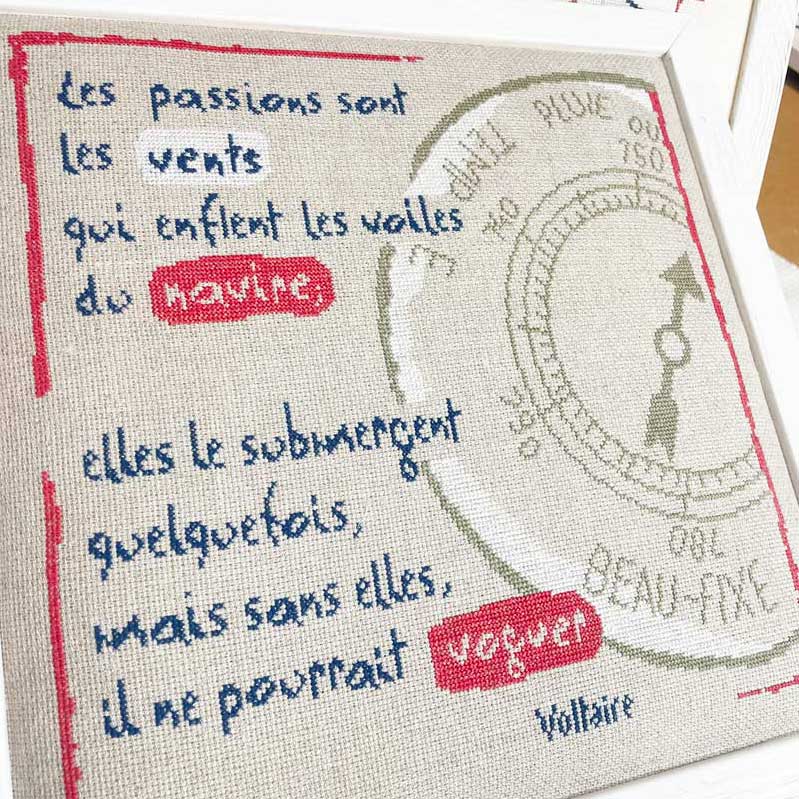 Les passions sont
les vents
qui enflent les voiles
du navire,
elles le submergent
quelquefois,
mais sans elles,
il ne pourrait voguer
Voltaire
PLUIE OU
750
BEAU-FIXE